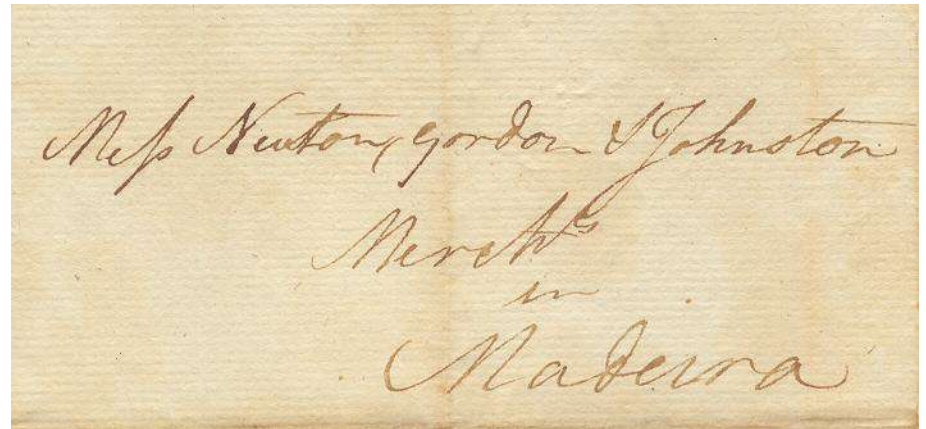 Mess Newton, Gordon & Johnston
Merchts
in
Madeira